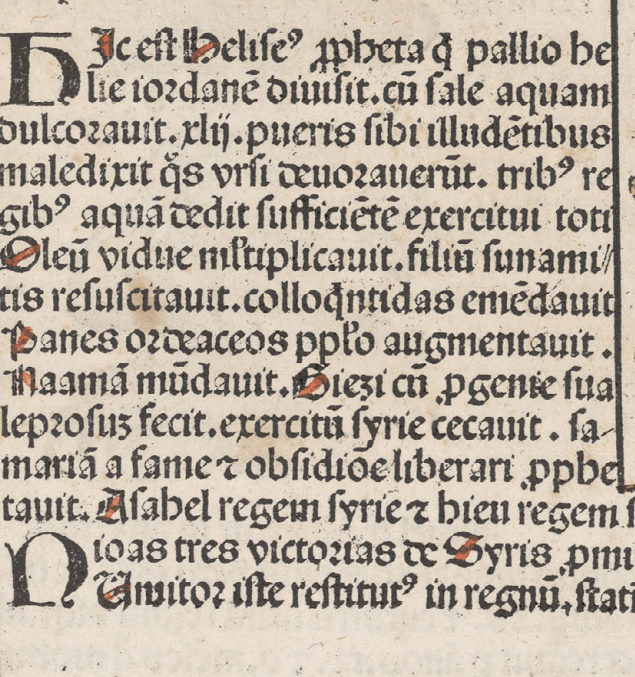 HIc est Heliseꝰ ꝓpheta q̄ pallio he
lie iordanē diuisit. cū sale aquam
dulcorauit. xlij. pueris sibi illudētibus
maledixit q̊s vrsi deuorauerūt. tribꝰ re
gibꝰ aquā dedit sufficiētē exercitui toti
Oleū vidue mĺtiplicauit. filiū sunami//
tis resuscitauit. colloq̄ntidas emēdauit
Panes ordeaceos ppĺo augmentauit .
Naamā mūdauit. Giezi cū ꝓgenie sua
leprosuʒ fecit. exercitū syrie cecauit . sa-
mariā a fame ⁊ obsidiōe liberari ꝓphe
tauit. Asahel regem syrie ⁊ hieu regem
ioas tres victorias de Syris ꝓmi
NUmitor iste restitutꝰ in regnū, stati